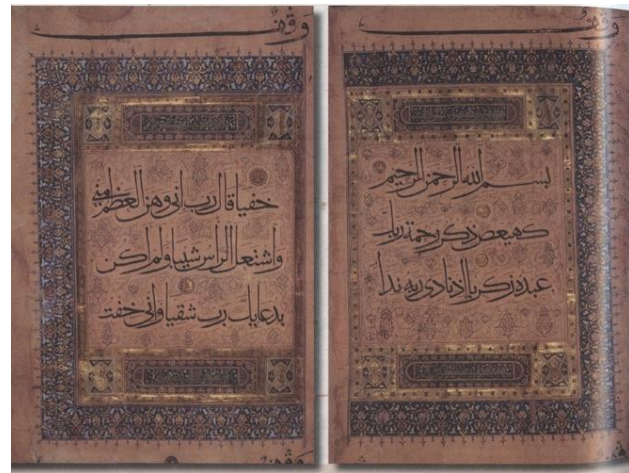 وقف
بسم الله الرحمن الرحيم
كهيعص ذكر رحمة ربك
عبده زكريا إذ نادى ربه ندا
وقف
خفيا قال رب اني وهن العظم مني
واشتعل الراس شيبا ولم اكن
بدعايك رب شقيا واني خفت